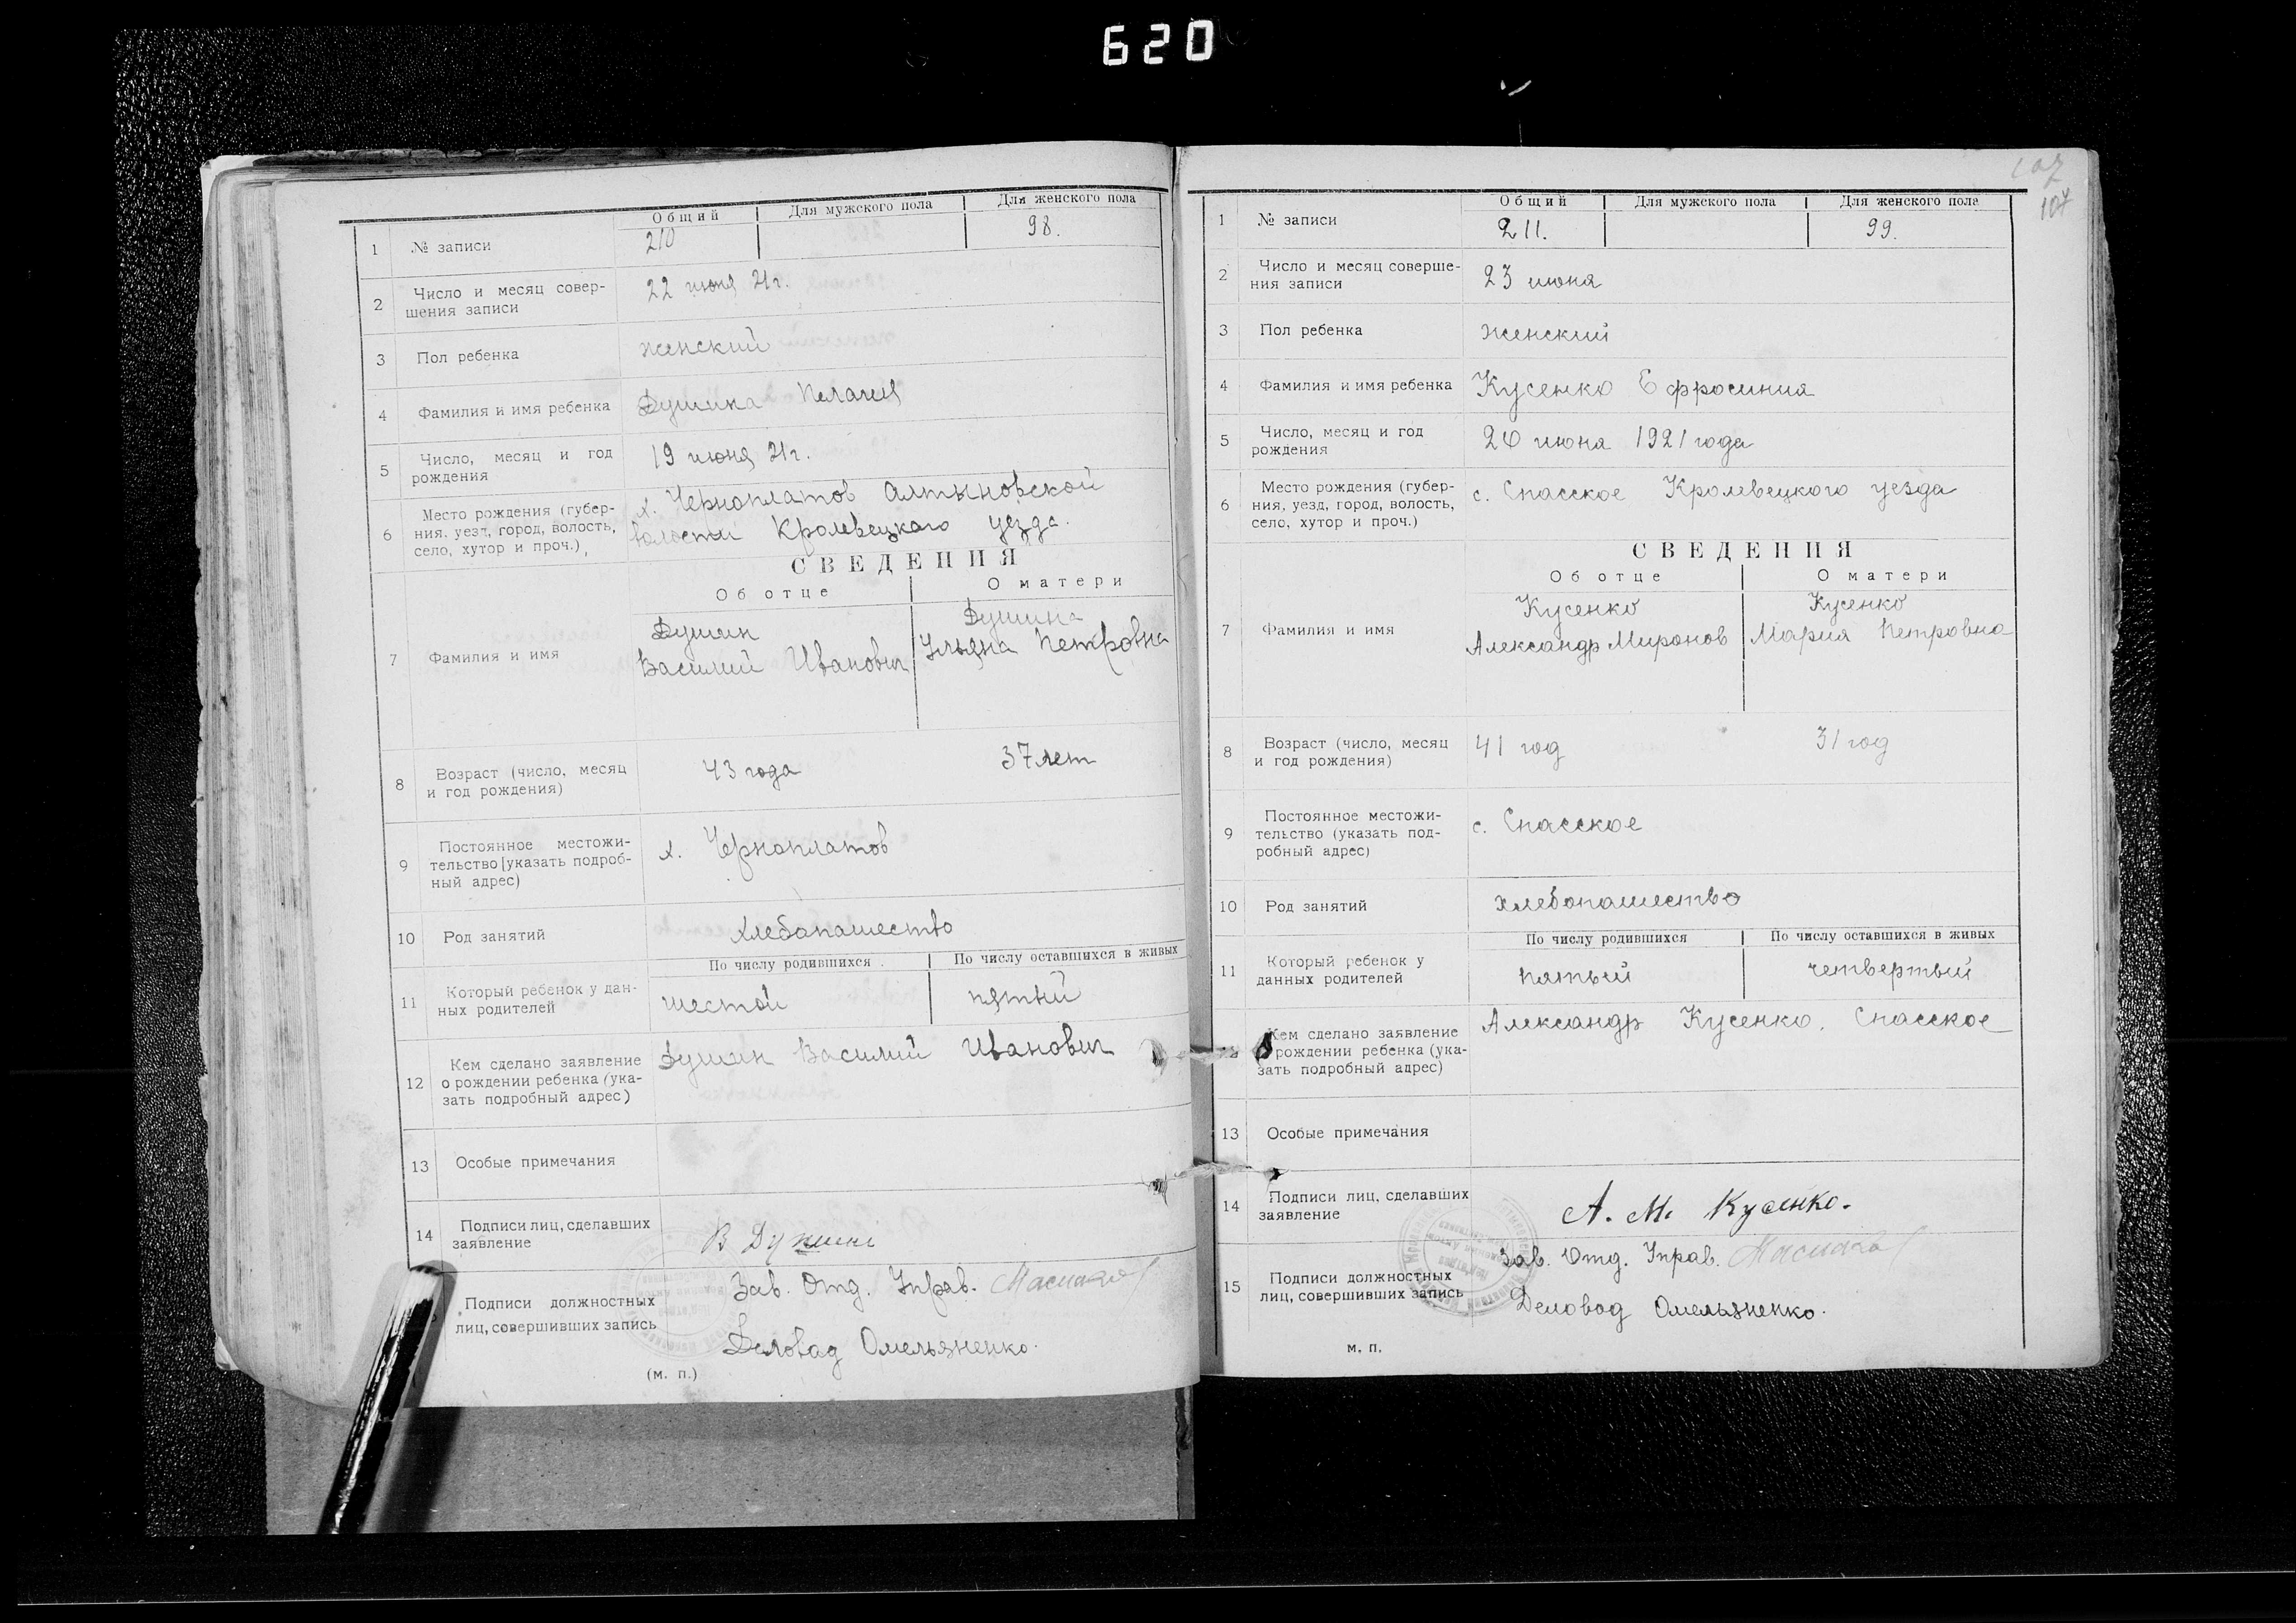 620
Общий Для мужского пола Для женского пола
1 № записи 210 98.
2 Число и месяц совер-
шения записи
22 июня 21г.
3 Пол ребенка женский
4 Фамилия и имя ребенка Душина Пелагея
5 Число, месяц и год
рождения
19 июня 21г.
6 Место рождения (губер-
ния, уезд, город, волость,
село, хутор и проч.)
х. Черноплатов Алтыновской
волости Кролевецкаго уезда.
СВЕДЕНИЯ
Об отце О матери
7 Фамилия и имя
Душин Душина
Василий Иванович Ульяна Петровна
8 Возраст (число, месяц
и год рождения)
43 года 37 лет
9 Постоянное местожи-
тельство (указать подроб-
ный адрес)
х. Черноплатов
10 Род занятий хлебопашество
По числу родившихся По числу оставшихся в живых
11 Который ребенок у дан-
ных родителей
шестой пятый
12 Кем сделано заявление
о рождении ребенка (ука-
зать подробный адрес)
Душин Василий Иванович
13 Особые примечания
14 Подписи лиц, сделавших
заявление
В Душин
Подписи должностных
лиц, совершивших запись
Зав. Отд. Управ.
Деловод Омельяненко.
(м. п.)
107
Общий Для мужского пола Для женского пола
1 № записи 211. 99.
2 Число и месяц соверше-
ния записи
23 июня
3 Пол ребенка женский
4 Фамилия и имя ребенка Кусенко Ефросиния
5 Число, месяц и год
рождения
20 июня 1921 года
6 Место рождения (губер-
ния, уезд, город, волость,
село, хутор и проч.)
с. Спасское Кролевецкого уезда
СВЕДЕНИЯ
Об отце О матери
7 Фамилия и имя
Кусенко Кусенко
Александр Миронов Мария Петровна
8 Возраст (число, месяц
и год рождения)
41 год 31 год
9 Постоянное местожи-
тельство (указать под-
робный адрес)
с. Спасское
10 Род занятий хлебопашество
По числу родившихся По числу оставшихся в живых
11 Который ребенок у
данных родителей
пятый четвертый
Кем сделано заявление
рождении ребенка (ука-
зать подробный адрес)
Александр Кусенко. Спасское
13 Особые примечания
14 Подписи лиц, сделавших
заявление
А. М. Кусенко.
15 Подписи должностных
лиц, совершивших запись
Зав. Отд. Управ.
Деловод Омельяненко.
м. п.